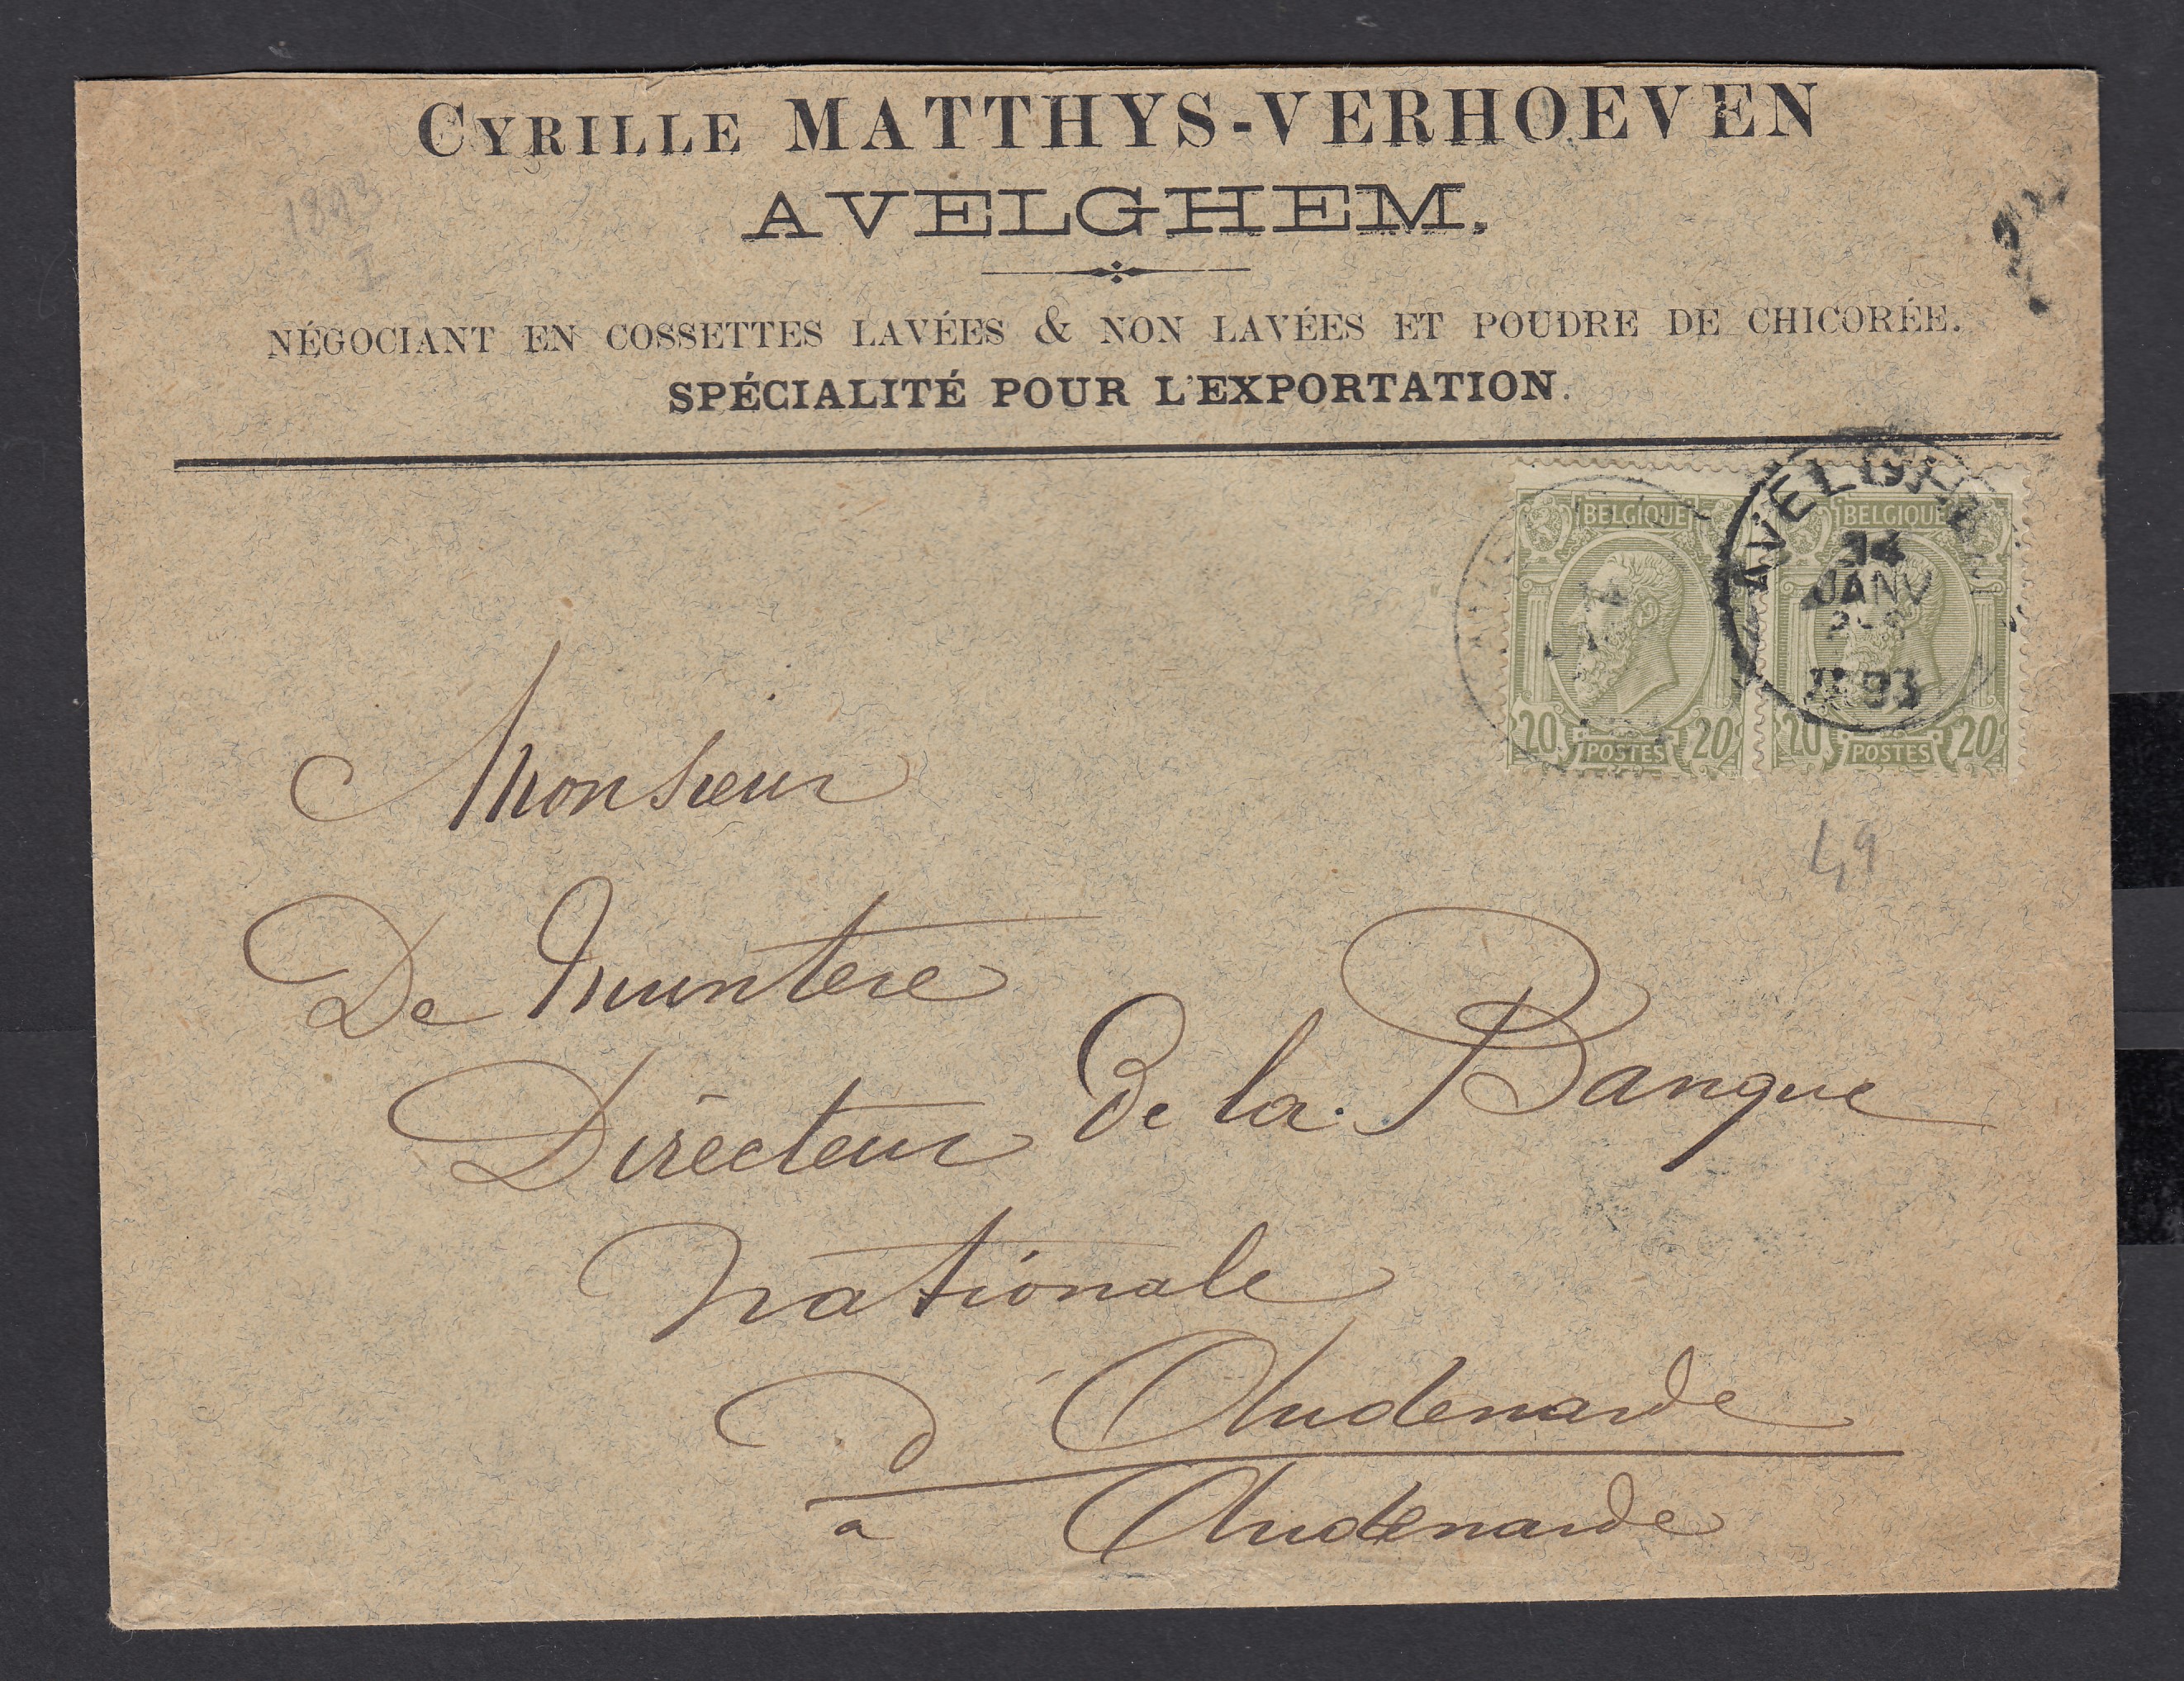 CYRILLE MATTHYS-VERHOEVEN
AVELGHEM.
1893
I
NÉGOCIANT EN COSSETTES LAVÉES & NON LAVÉES ET POUDRE DE CHICORÉE.
SPÉCIALITÉ POUR L'EXPORTATION.
BELGIQUE BELGIQUE
AVELGHEM
14
JANV
1893
20 POSTES 20 20 POSTES 20
49
Monsieur
De Muntere
Directeur De la Banque
Nationale
d'Audenarde
a Audenarde